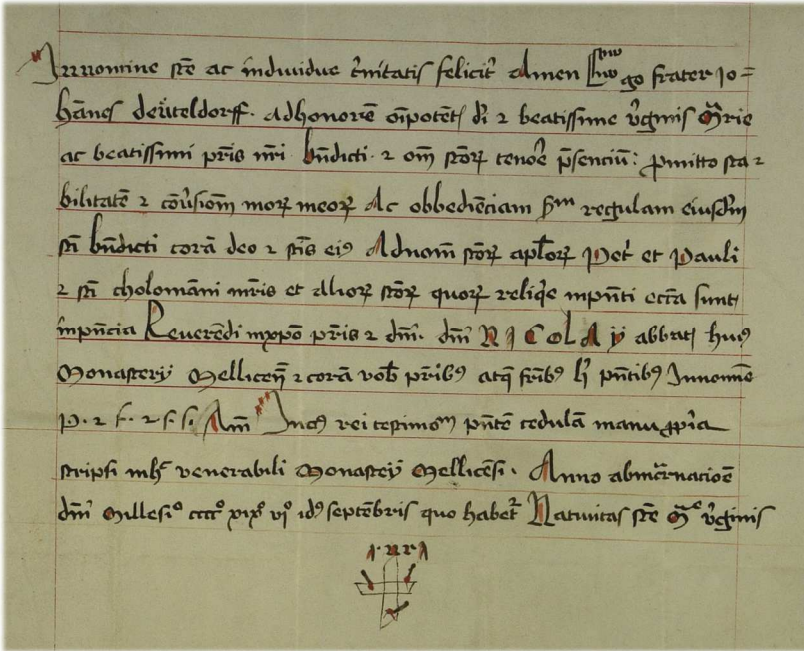 In nomine scē ac individue t̄nitatis feliciť Amen Ego frater Jo=
hānes de Weiteldorff. Ad honorē oīpotent di ⁊ beatissime v̄ginis Marie
ac beatissimi pr̄is nr̄i bn̄dicti ⁊ om̄ scōꝝ tenoꝛe p̄senciū: ꝓmitto sta⹀
bilitatē ⁊ cōv̄siom̄ moꝝ meoꝝ Ac obbedienciam scd̄m regulam eiusdm̄
scī bn̄dicti corā deo ⁊ scīs eiꝰ Ad nom̄ scōꝝ apl̄oꝝ Pet̓ et Pauli
⁊ scī cholomāni mr̄is et alioꝝ scōꝝ quoꝝ reliq̓e in pn̄ti ecc̄a sunt
in pn̄cia Reverēdi in xp̄o pr̄is ⁊ dn̄i. dn̄i NICOLAY abbat huiꝰ
Monastery Mellicen̄ ⁊ corā vob̄ pr̄ibꝰ atqꝫ fr̄ibꝰ pn̄tibꝰ In noīe
P. ⁊ f. ⁊ s. s. Am̄ In cꝰ rei testimom̄ pn̄tē cedulā manu ꝓp̓a
scripsi in hͦ venerabili Monastey Mellicēsi. Anno ab incarnacioē
dn̄i Millesiͦ ccccͦ xixͦ viͦ idꝰ septēbris quo habet̓ Nativitas scē Mͬe v̄ginis